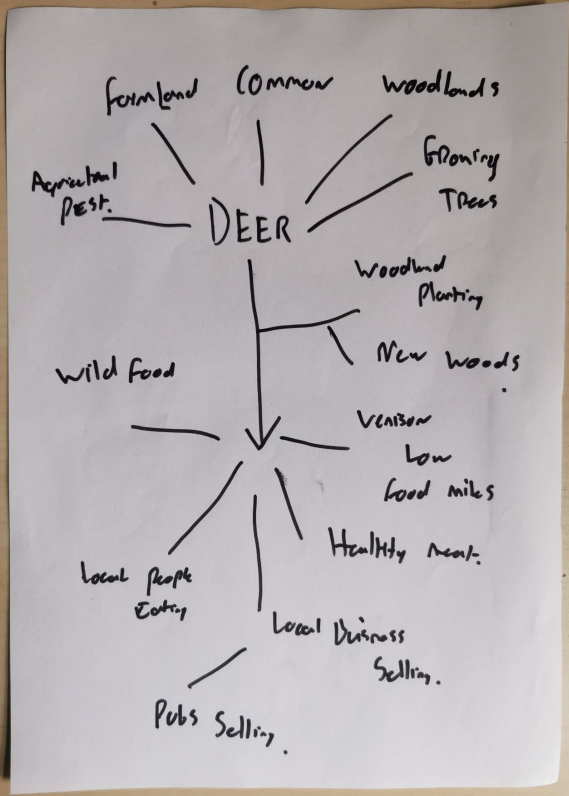 Farmland
Common
Woodlands
Growing
Trees
Agricultural
Pest.
DEER
Woodland
Planting
New Woods.
Wild Food
Venison
Low
Food miles
Healthy meat.
Local People
Eating
Local Buisness
Selling.
Pubs Selling.